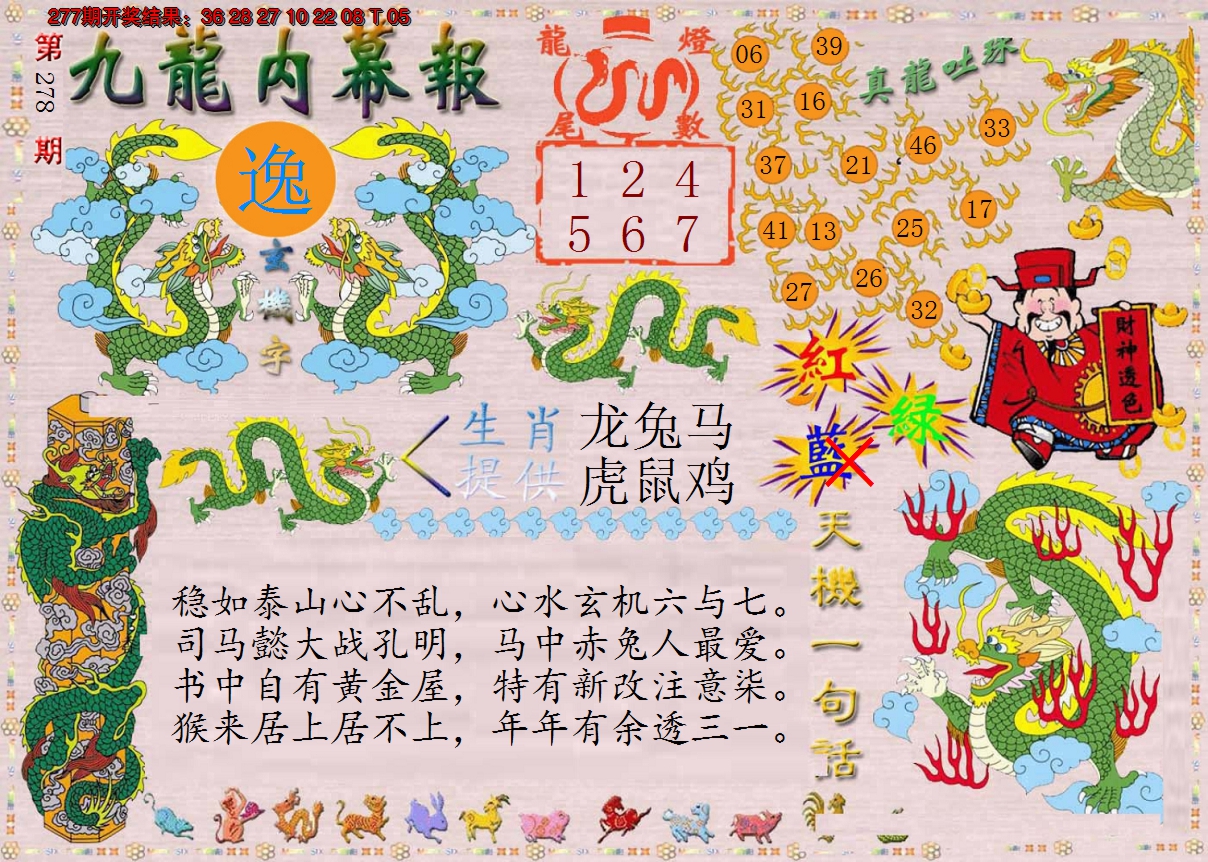 277期开奖结果：36 28 27 10 22 08 T 05
第278期
九龍内幕報
逸
玄機字
龍燈
尾數
1 2 4
5 6 7
真龍吐珠
06
39
31
16
33
46
37
21
17
41
13
25
26
27
32
財神透色
紅
綠
藍
生肖
提供
龙兔马
虎鼠鸡
天機一句话
稳如泰山心不乱，心水玄机六与七。
司马懿大战孔明，马中赤兔人最爱。
书中自有黄金屋，特有新改注意柒。
猴来居上居不上，年年有余透三一。